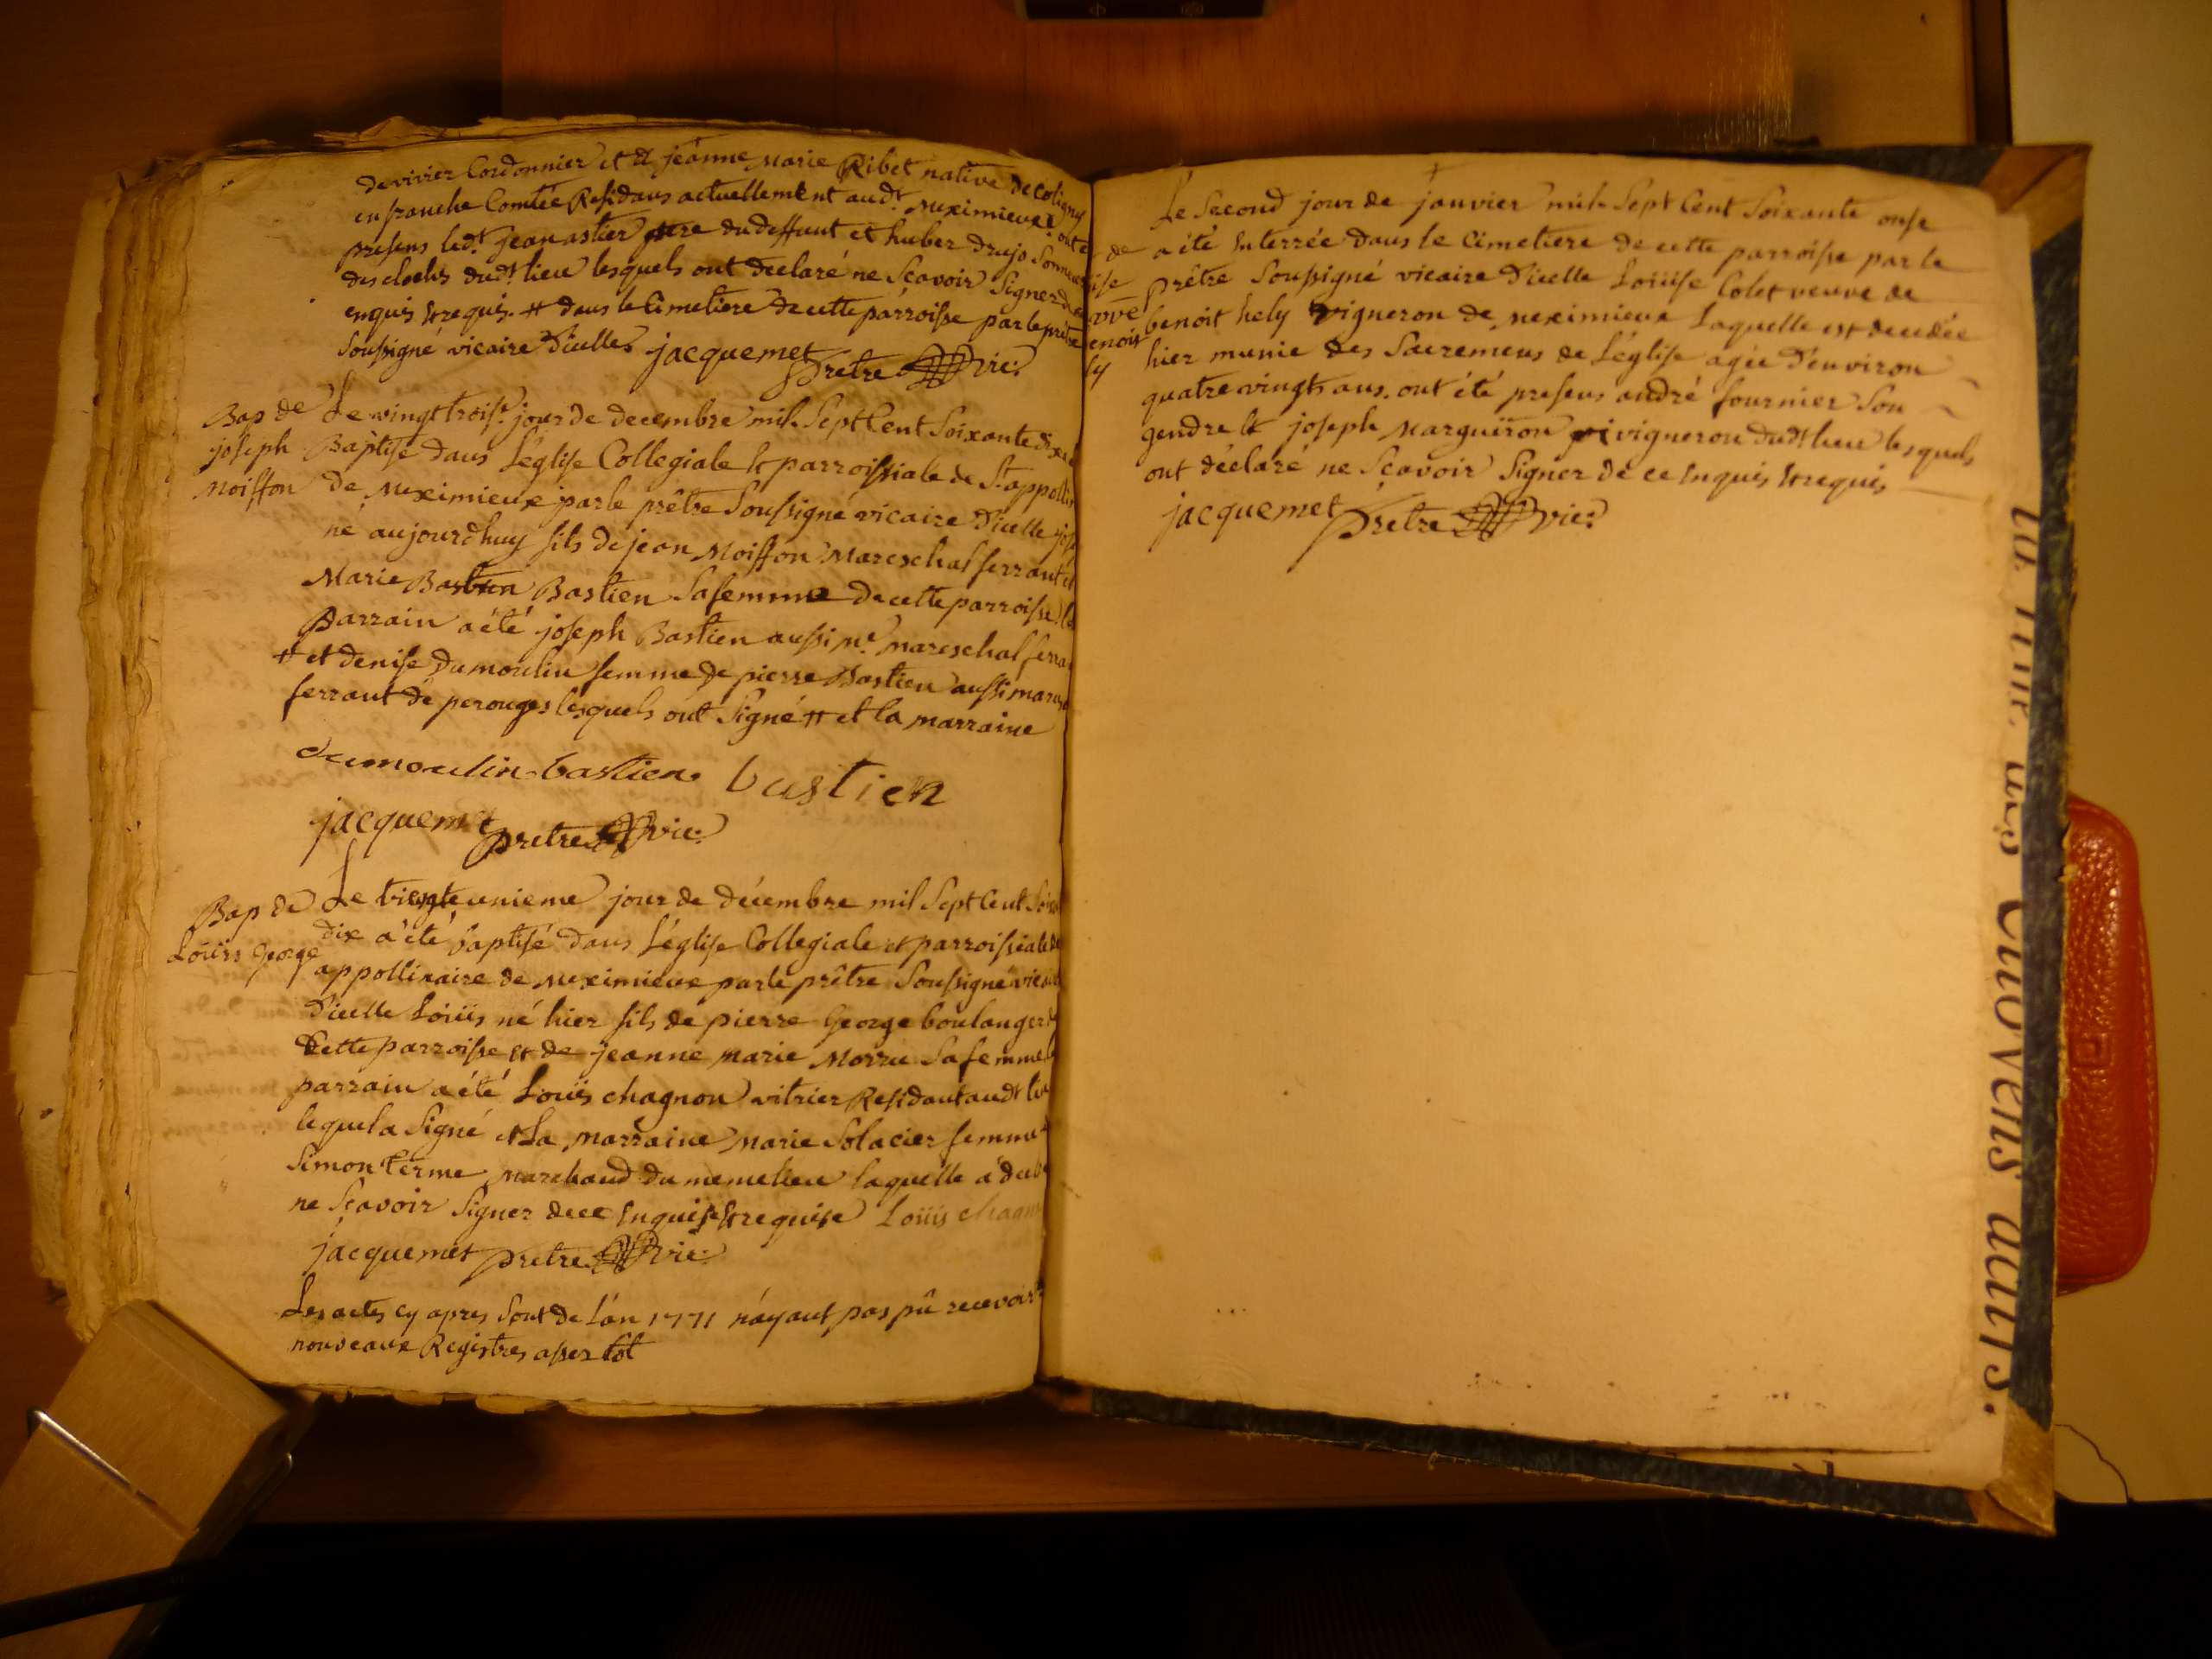 de vivier Cordonnier et de jeanne Marie Ribet native de coligny
en franche Comtée Residans actuellement aud.t Meximieux. ont été
presens led.t jean astier pere du deffunt et huber drujo Sonneur
des cloches dud.t lieu lesquels ont declaré ne Scavoir Signer de ce
enquis et requis. # dans le Cimetiere de cette parroisse par le prêtre
Soussigné vicaire d'icelle jacquemet
prêtre vic:
Bap de
joseph
Moiffon
Le vingt trois.e jour de decembre mil Sept Cent Soixante dix a
Baptisé dans l'église Collegiale et parroissiale de St appolli
de Meximieux par le prêtre Soussigné vicaire d'icelle jos
né aujourd'huy fils de jean Moiffon Mareschal ferrant et
Marie Bastien Bastien Sa femme de cette parroisse le
Parrain a été joseph Bastien aussi M.e mareschal ferra
# et denise Dumoulin femme de pierre Bastien aussi mares
ferrant de perouges lesquels ont Signé # et la marraine
dumoulin bastien bastien
jacquemet
prêtre vic:
Bap de
Loüis George
Le trente unieme jour de décembre mil Sept Cent Soix
dix a été baptisé dans l'église Collegiale et parroissiale de
appollinaire de Meximieux par le prêtre Soussigné vicai
d'icelle Loüis né hier fils de pierre George boulanger de
Cette parroisse et de jeanne marie Morru Sa femme le
parrain a été Loüis chagnon vitrier Residant aud.t lieu
lequel a Signé et La marraine Marie Solacier femme de
Simon ferme Marchand du meme lieu laquelle a décl
ne Scavoir Signer de ce Enquise et requise Loüis chagn
jacquemet prêtre vic:
Les actes cy apres Sont de l'an 1771 n'ayant pas pû recevoir
nouveaux Registres assez tot
de
ise
vve
enoit
ly
Le Second jour de janvier mil Sept Cent Soixante onse
a été Enterrée dans le Cimetiere de cette parroisse par le
Prêtre Soussigné vicaire d'icelle Loüise Colet veuve de
benoit hely vigneron de Meximieux Laquelle est decedée
hier munie des Sacremens de l'église agée d'environ
quatre vingts ans. ont été presens andré fournier Son
gendre et joseph Marguiron vigneron dud.t lieu lesquels
ont déclaré ne Sçavoir Signer de ce Enquis et requis
jacquemet
prêtre vic: